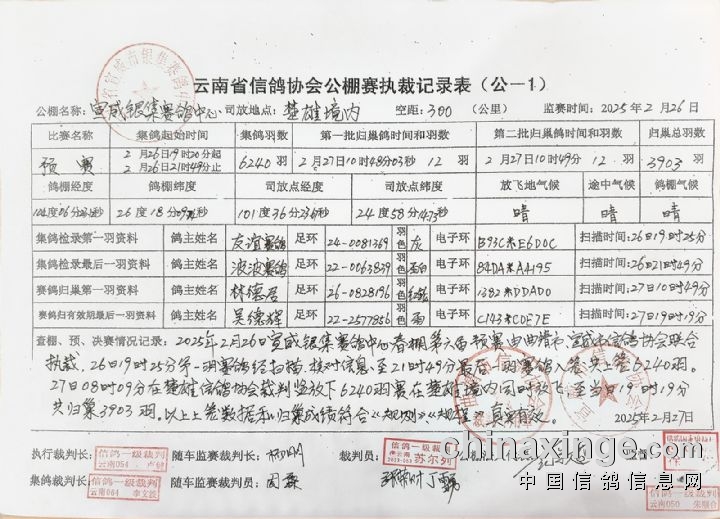 云南省信鸽协会公棚赛执裁记录表（公一1）
公棚名称：宣威银集赛鸽中心 司放地点：楚雄境内 空距：300（公里） 监赛时间：2025年2月26日
比赛名称 集鸽起始时间 集鸽羽数 第一批归巢鸽时间和羽数 第二批归巢鸽时间和羽数 归巢总羽数
预赛 2月26日19时20分起 2月26日21时49分止 6240羽 2月27日10时48分03秒 12羽 2月27日10时49分 12羽 3903羽
鸽棚经度 鸽棚纬度 司放点经度 司放点纬度 放飞地气候 途中气候 鸽棚气候
26度18分 101度36分 24度58分 晴 晴 晴
集鸽检录第一羽资料 鸽主姓名 友谊赛鸽 足环 24-0081369 羽色 灰 电子环 扫描时间：26日19时25分
集鸽检录最后一羽资料 鸽主姓名 波波赛鸽 足环 22-0063839 电子环 扫描时间：26日21时49分
赛鸽归巢第一羽资料 鸽主姓名 林德居 足环 26-0828196 电子环 1382 DDAD0 扫描时间：27日10时49分
赛鸽归有效期最后一羽资料 鸽主姓名 吴德辉 足环 22-2577856 电子环 扫描时间：27日19时19分
查棚、预、决赛情况记录：2025年2月26日宣威银集赛鸽中心春棚第六届预赛由曲靖市、宣威市信鸽协会联合
执裁，26日19时25分第一羽赛鸽经扫描、核对信息，至21时49分最后一羽赛鸽入笼，共上笼6240羽。
27日08时09分在楚雄信鸽协会裁判监放下6240羽赛在楚雄境内同时放飞，至当日19时19分
共归巢3903羽。以上上笼数据和归巢成绩符合《规则》《规程》，真实有效。
2025年2月27日
执行裁判长： 信鸽一级裁判 云南054 随车监赛裁判长： 裁判员： 信鸽一级裁判 苏尔列
集鸽裁判长： 信鸽一级裁判 云南064 李文波 随车监赛裁判员： 周森
chinaxinge.com
中国信鸽信息网